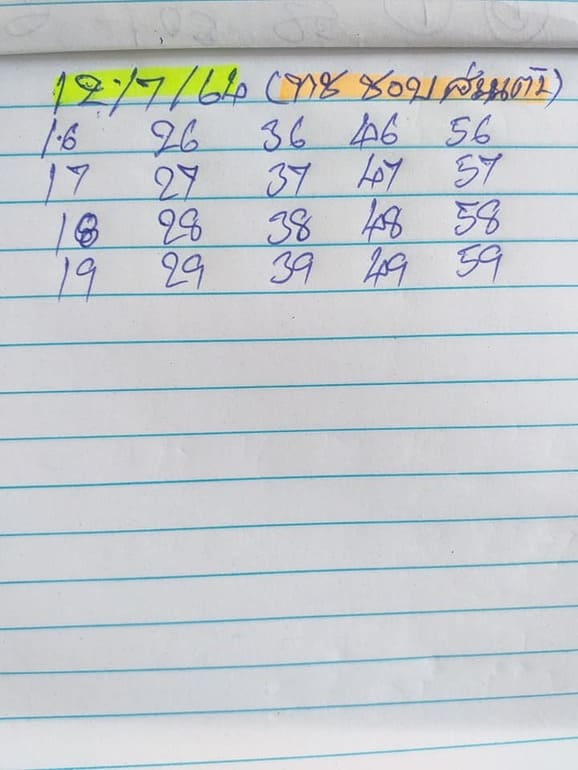 12/7/64 (ทาช ชอบ
16 26 36 46 56
17 27 37 47 57
18 28 38 48 58
19 29 39 49 59